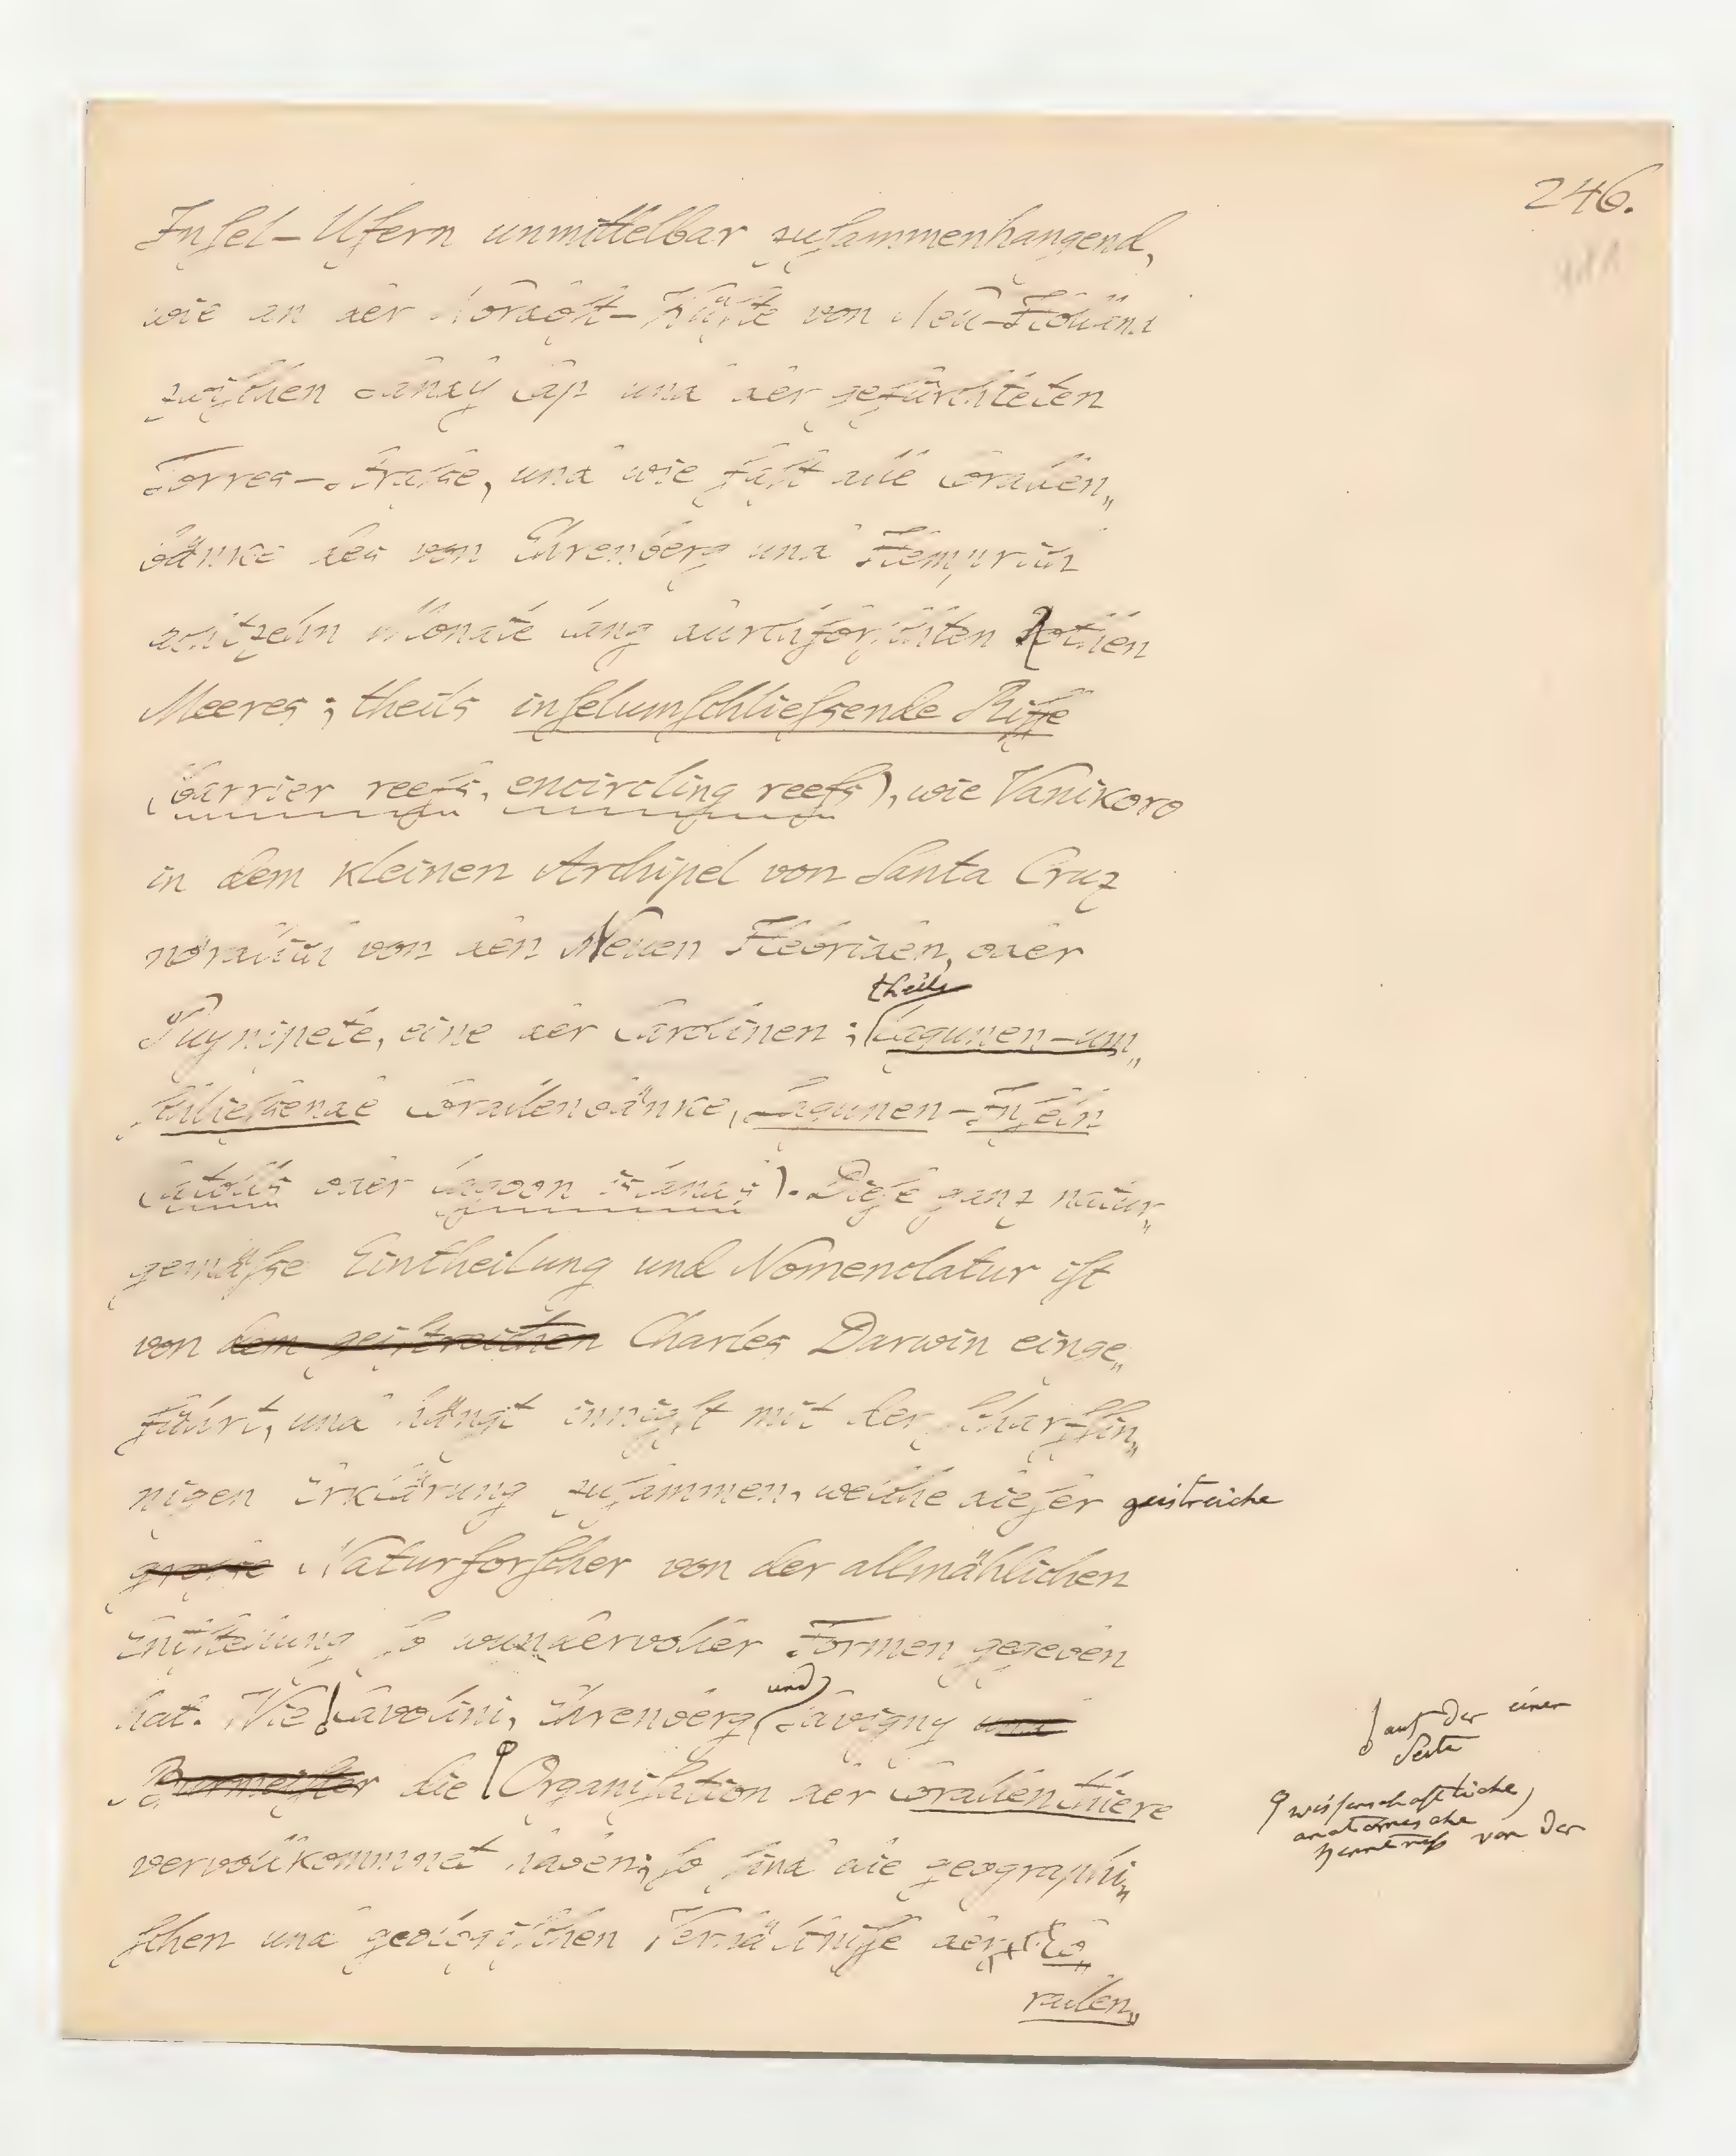 246.
Inſel-Ufern unmittelbar zuſammenhangend,
wie an der Nordoſt-Küſte von Neu-Holland
zwiſchen Sandy Cap und der gefürchteten
Torres-Straſse, und wie faſt alle Corallen„
bänke des von Ehrenberg und Hemprich
achtzehn Monate lang durchforſchten Rothen
Meeres; theils inſelumſchlieſsende Riffe
(barrier reefs, encircling reefs), wie Vanikoro
in dem kleinen Archipel von Santa Cruz
nördlich von den Neuen Hebriden, oder
theils
Puynipete, eine der Carolinen; Lagunen-um„
ſchlieſsende Corallenbänke, Lagunen-Inſeln
(atolls oder lagoon islands). Dieſe ganz natur„
gemäſse Eintheilung und Nomenclatur iſt
von dem geiſtreichen Charles Darwin einge„
führt, und hängt innigſt mit der ſcharfſin„
nigen Erklärung zuſammen, welche dieſer geistreiche
groſse Naturforſcher von der allmählichen
Entſtehung ſo wundervoller Formen gegeben
und
hat. Wie Cavolini, Ehrenberg Savigny und
auf der einen
Seite
Burmeiſter die Organiſation der Corallenthiere
wiſsenschaftliche,
anatomische
Kenntniß von der
vervollkommnet haben; ſo ſind die geographi„
ſchen und geologiſchen Verhältniſſe der Co„
rallen„